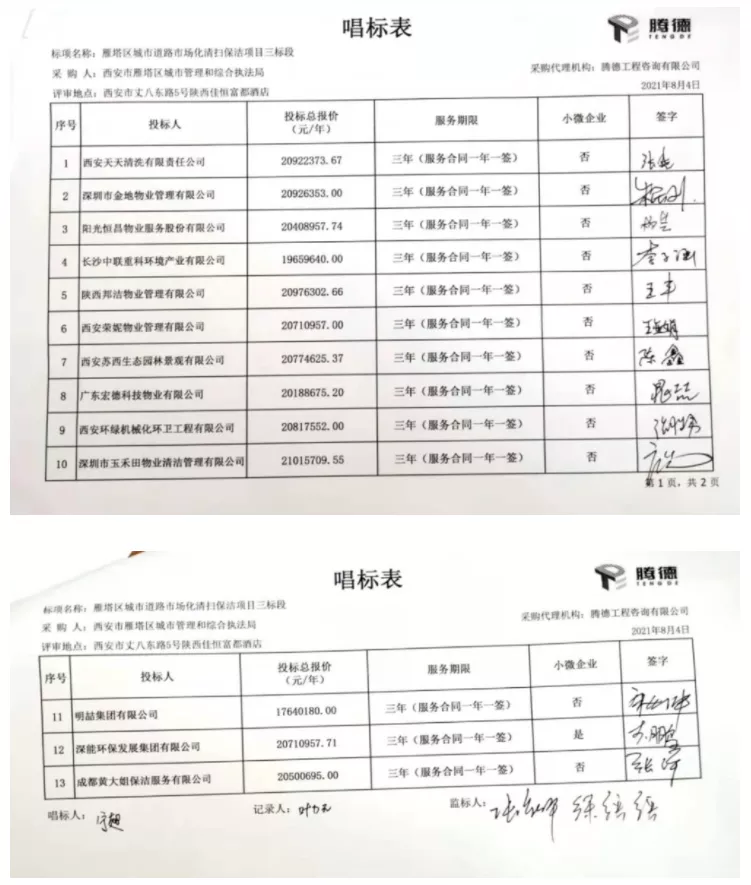 唱标表
腾德
TENG DE
标项名称：雁塔区城市道路市场化清扫保洁项目三标段
采 购 人：西安市雁塔区城市管理和综合执法局
采购代理机构：腾德工程咨询有限公司
评审地点：西安市丈八东路5号陕西佳恒富都酒店
2021年8月4日
序号 投标人 投标总报价（元/年） 服务期限 小微企业 签字
1 西安天天清洗有限责任公司 20922373.67 三年（服务合同一年一签） 否
2 深圳市金地物业管理有限公司 20926353.00 三年（服务合同一年一签） 否
3 阳光恒昌物业服务股份有限公司 20408957.74 三年（服务合同一年一签） 否
4 长沙中联重科环境产业有限公司 19659640.00 三年（服务合同一年一签） 否
5 陕西邦洁物业管理有限公司 20976302.66 三年（服务合同一年一签） 否 王丰
6 西安荣妮物业管理有限公司 20710957.00 三年（服务合同一年一签） 否
7 西安苏西生态园林景观有限公司 20774625.37 三年（服务合同一年一签） 否 陈鑫
8 广东宏德科技物业有限公司 20188675.20 三年（服务合同一年一签） 否
9 西安环绿机械化环卫工程有限公司 20817552.00 三年（服务合同一年一签） 否
10 深圳市玉禾田物业清洁管理有限公司 21015709.55 三年（服务合同一年一签） 否
第1页，共2页
唱标表
腾德
TENG DE
标项名称：雁塔区城市道路市场化清扫保洁项目三标段
采 购 人：西安市雁塔区城市管理和综合执法局
采购代理机构：腾德工程咨询有限公司
评审地点：西安市丈八东路5号陕西佳恒富都酒店
2021年8月4日
序号 投标人 投标总报价（元/年） 服务期限 小微企业 签字
11 明喆集团有限公司 17640180.00 三年（服务合同一年一签） 否
12 深能环保发展集团有限公司 20710957.71 三年（服务合同一年一签） 是
13 成都黄大姐保洁服务有限公司 20500695.00 三年（服务合同一年一签） 否
唱标人： 记录人： 监标人：